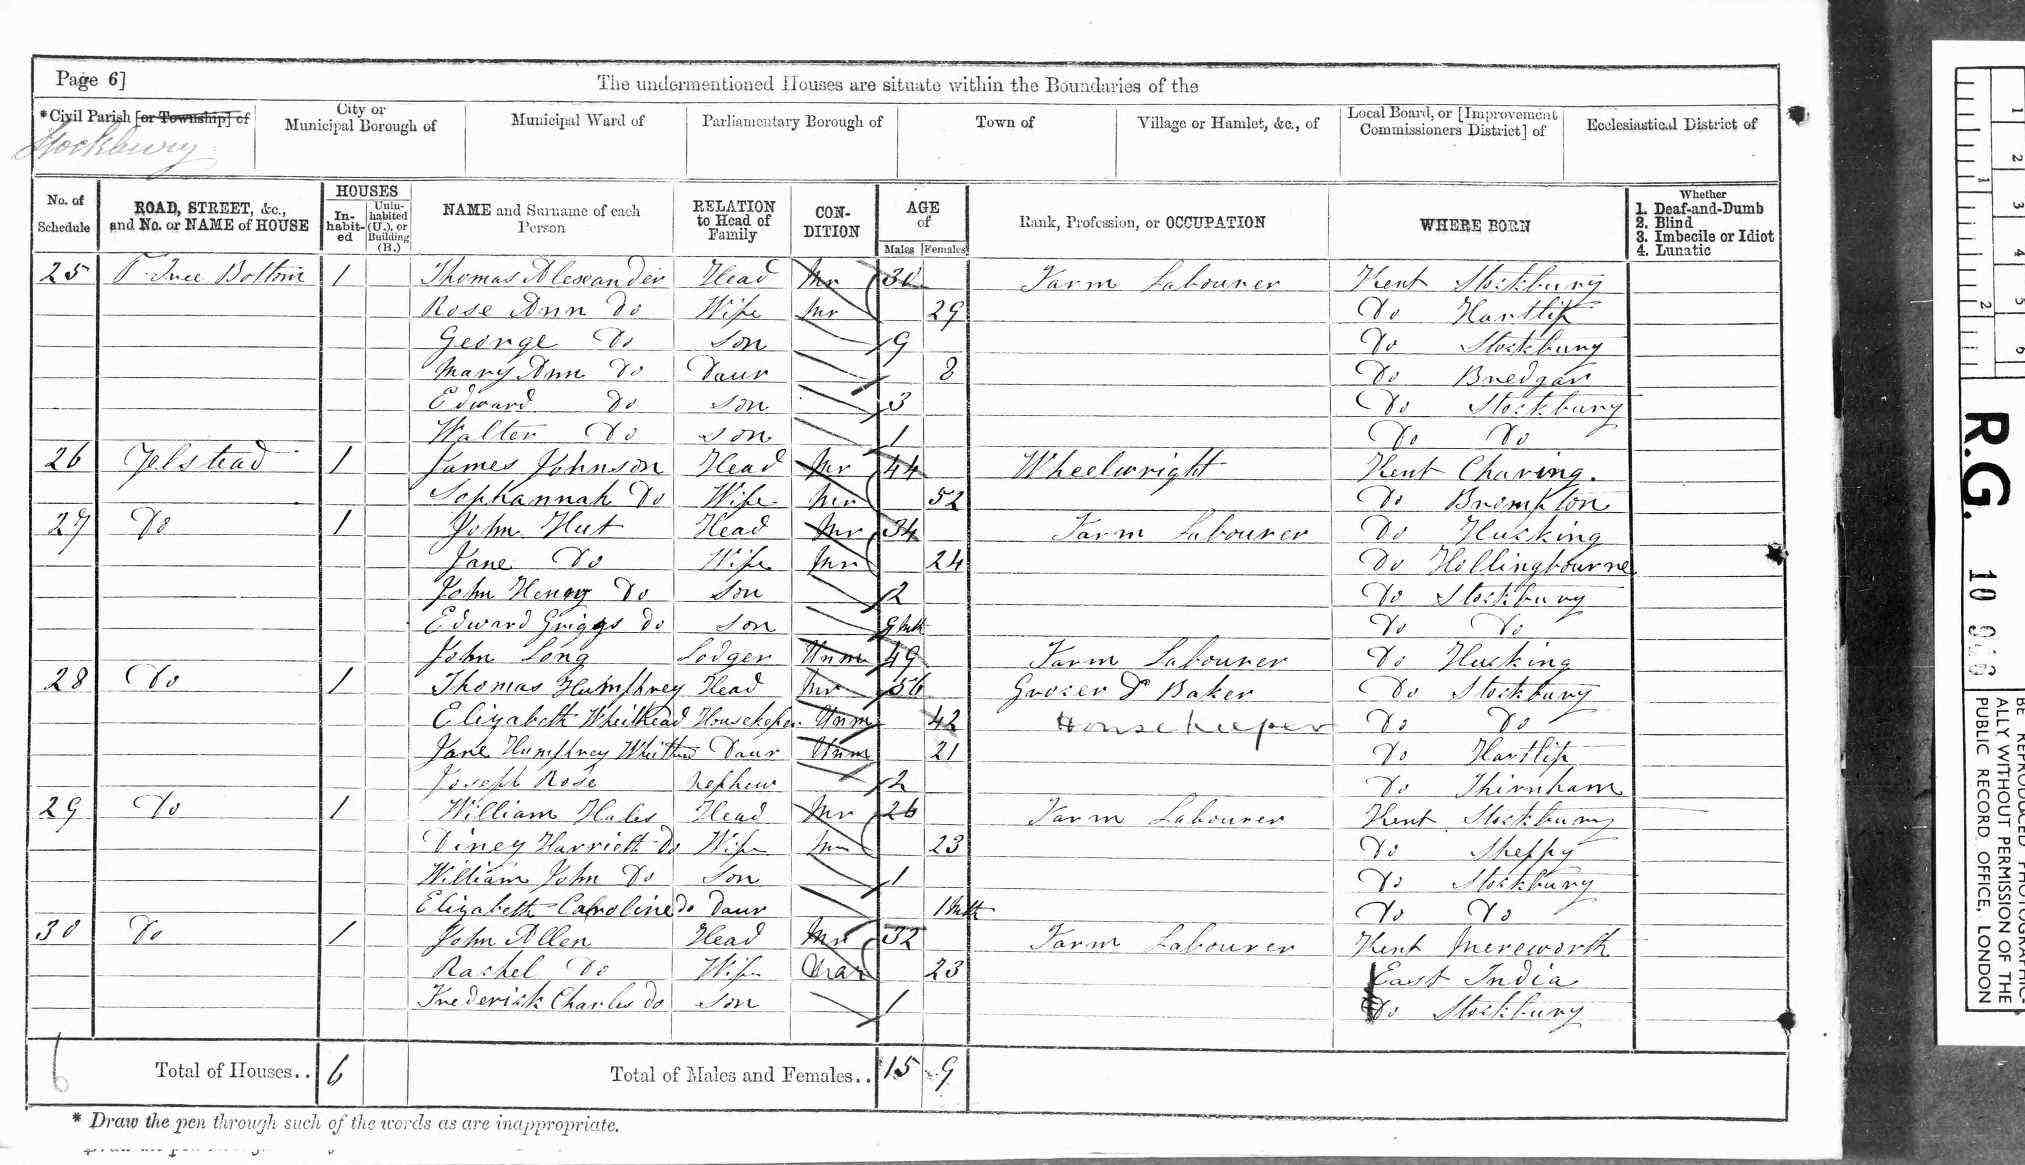 Page 6]
The undermentioned Houses are situate within the Boundaries of the
*Civil Parish [or Township] of
City or Municipal Borough of
Municipal Ward of
Parliamentary Borough of
Town of
Village or Hamlet, &c., of
Local Board, or [Improvement Commissioners District] of
Ecclesiastical District of
Stockbury
No. of Schedule
ROAD, STREET, &c., and No. or NAME of HOUSE
HOUSES
In-habit-ed
Unin-habited (U.), or Building (B.)
NAME and Surname of each Person
RELATION to Head of Family
CON-DITION
AGE of
Males
Females
Rank, Profession, or OCCUPATION
WHERE BORN
Whether
1. Deaf-and-Dumb
2. Blind
3. Imbecile or Idiot
4. Lunatic
25 Tree Bottom 1 Thomas Alexander Head Mr Farm Labourer Kent Stockbury
Rose Ann Do Wife Mr 29 Do Hartlip
George Do Son 9 Do Stockbury
Mary Ann Do Daur 8 Do Bredgar
Edward Do Son 3 Do Stockbury
Walter Do Son 1 Do Do
26 Yelstead 1 James Johnson Head Mr 44 Wheelwright Kent Charing.
Sophannah Do Wife Mr 52 Do Brompton
27 Do 1 John Hut Head Mr 34 Farm Labourer Do Hucking
Jane Do Wife Mr 24 Do Hollingbourne
John Henry Do Son 2 Do Stockbury
Edward Griggs do Son 9 Mth Do Do
John Long Lodger Unm 49 Farm Labourer Do Hucking
28 Do 1 Thomas Humphrey Head Mr 56 Grocer & Baker Do Stockbury
Elizabeth Housekeeper Unm 42 Housekeeper Do Do
Jane Humphrey Daur Unm 21 Do Hartlip
Joseph Rose Nephew 2 Do Thirnham
29 Do 1 William Hales Head Mr 26 Farm Labourer Kent Stockbury
Diney Harriett Do Wife Mr 23 Do Sheppy
William John Do Son 1 Do Stockbury
Elizabeth Caroline do Daur 1 Mth Do Do
30 Do 1 John Allen Head Mr 32 Farm Labourer Kent Mereworth
Rachel Do Wife Mar 23 East India
Frederick Charles do Son 1 Do Stockbury
6
Total of Houses.. 6
Total of Males and Females.. 15 9
* Draw the pen through such of the words as are inappropriate.
1
2
3
4
5
6
1
2
R.G. 10
PUBLIC RECORD OFFICE, LONDON
ALLY WITHOUT PERMISSION OF THE
BE REPRODUCED PHOTOGRAPHIC-